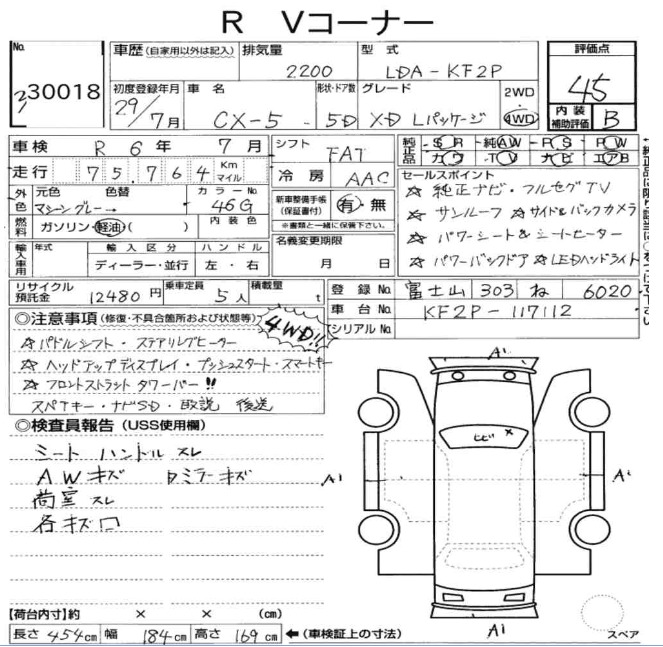 R Vコーナー
No. 30018
車歴 (自家用以外は記入) 排気量 2200 型式 LDA-KF2P 評価点 4.5
初度登録年月 29/7月 車名 CX-5 形状・ドア数 5D グレード XD Lパッケージ 2WD 4WD 内装補助評価 B
車検 R 6年 7月 シフト FAT 純正品 SR 純AW PS PW
走行 75,764 Km マイル 冷房 AAC カワ TV ナビ エアB
外色 元色 マシーングレー→ 色替 カラーNo. 46G 新車整備手帳(保証書付) 有・無 セールスポイント
※書類と一緒に保管下さい。 ☆純正ナビ・フルセグTV
燃料 ガソリン・軽油( ) 内装色 ☆サンルーフ ☆サイド&バックカメラ
輸入車用 年式 輸入区分 ハンドル 名義変更期限 ☆パワーシート&シートヒーター
ディーラー・並行 左・右 月 日 ☆パワーバックドア ☆LEDヘッドライト
リサイクル預託金 12480円 乗車定員 5人 積載量 t 登録No. 富士山 303 ね 6020
◎注意事項 (修復・不具合箇所および状態等) 4WD!! 車台No. KF2P-117112
シリアルNo.
☆パドルシフト・ステアリングヒーター
☆ヘッドアップディスプレイ・プッシュスタート・スマートキー
☆フロントストラットタワーバー!!
スペアキー・ナビSD・取説 後送
◎検査員報告 (USS使用欄)
シート ハンドル スレ
AWキズ ミラーキズ
荷室スレ
各キズ
A1
ビビ ×
A1 A1
A1
【荷台内寸】約 × × (cm)
長さ 454cm 幅 184cm 高さ 169cm ←(車検証上の寸法)
スペア